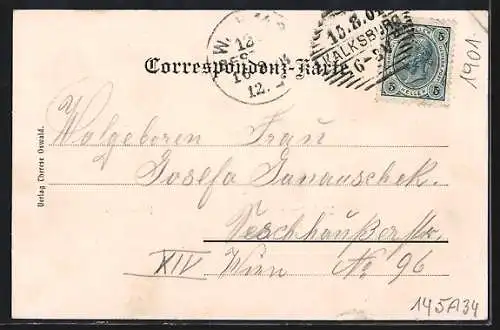 15.8.01
KALKSBURG
6-
5 HELLER 5
WIEN
12.
Correspondenz-Karte
1901
Wolgeboren Frau
Josefa Janauschek.
XIV Wien No 96
Verlag Therese Oswald.
145A34